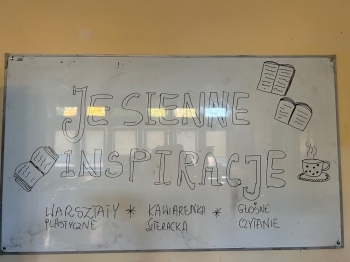 JESIENNE
INSPIRACJE
WARSZTATY * KAWIARENKA * GŁOŚNE
PLASTYCZNE LITERACKA CZYTANIE